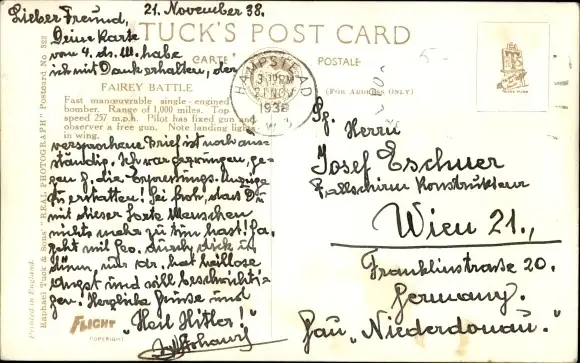 21. November 38.
Lieber Freund,
TUCK'S POST CARD
Deine Karte
vom 4. ds. M. habe
ich mit Dank erhalten, der
CARTE POSTALE
HAMPSTEAD
21 NOV
1938
(FOR ADDRESS ONLY)
FAIREY BATTLE
Fast manœuvrable single-engined
bomber. Range of 1,000 miles. Top
speed 257 m.p.h. Pilot has fixed gun and
observer a free gun. Note landing lights
in wing.
versprochene Brief ist noch aus-
ständig. Ich war gezwungen, ge-
gen
zu erstatten! Sei froh, dass Du
mit dieser Sorte Menschen
nichts mehr zu tun hast! Ja,
geht mit durch dick &
dünn, nur hat heillose
Angst und will beschwichti-
gen! Herzliche Grüsse und
"Heil Hitler!"
FLIGHT
COPYRIGHT
Printed in England.
Raphael Tuck & Sons' "REAL PHOTOGRAPH" Postcard No. 322
Herrn
Josef Eschner
Fallschirm Konstrukteur
Wien 21.,
Franklinstrasse 20.
Germany.
Gau "Niederdonau."